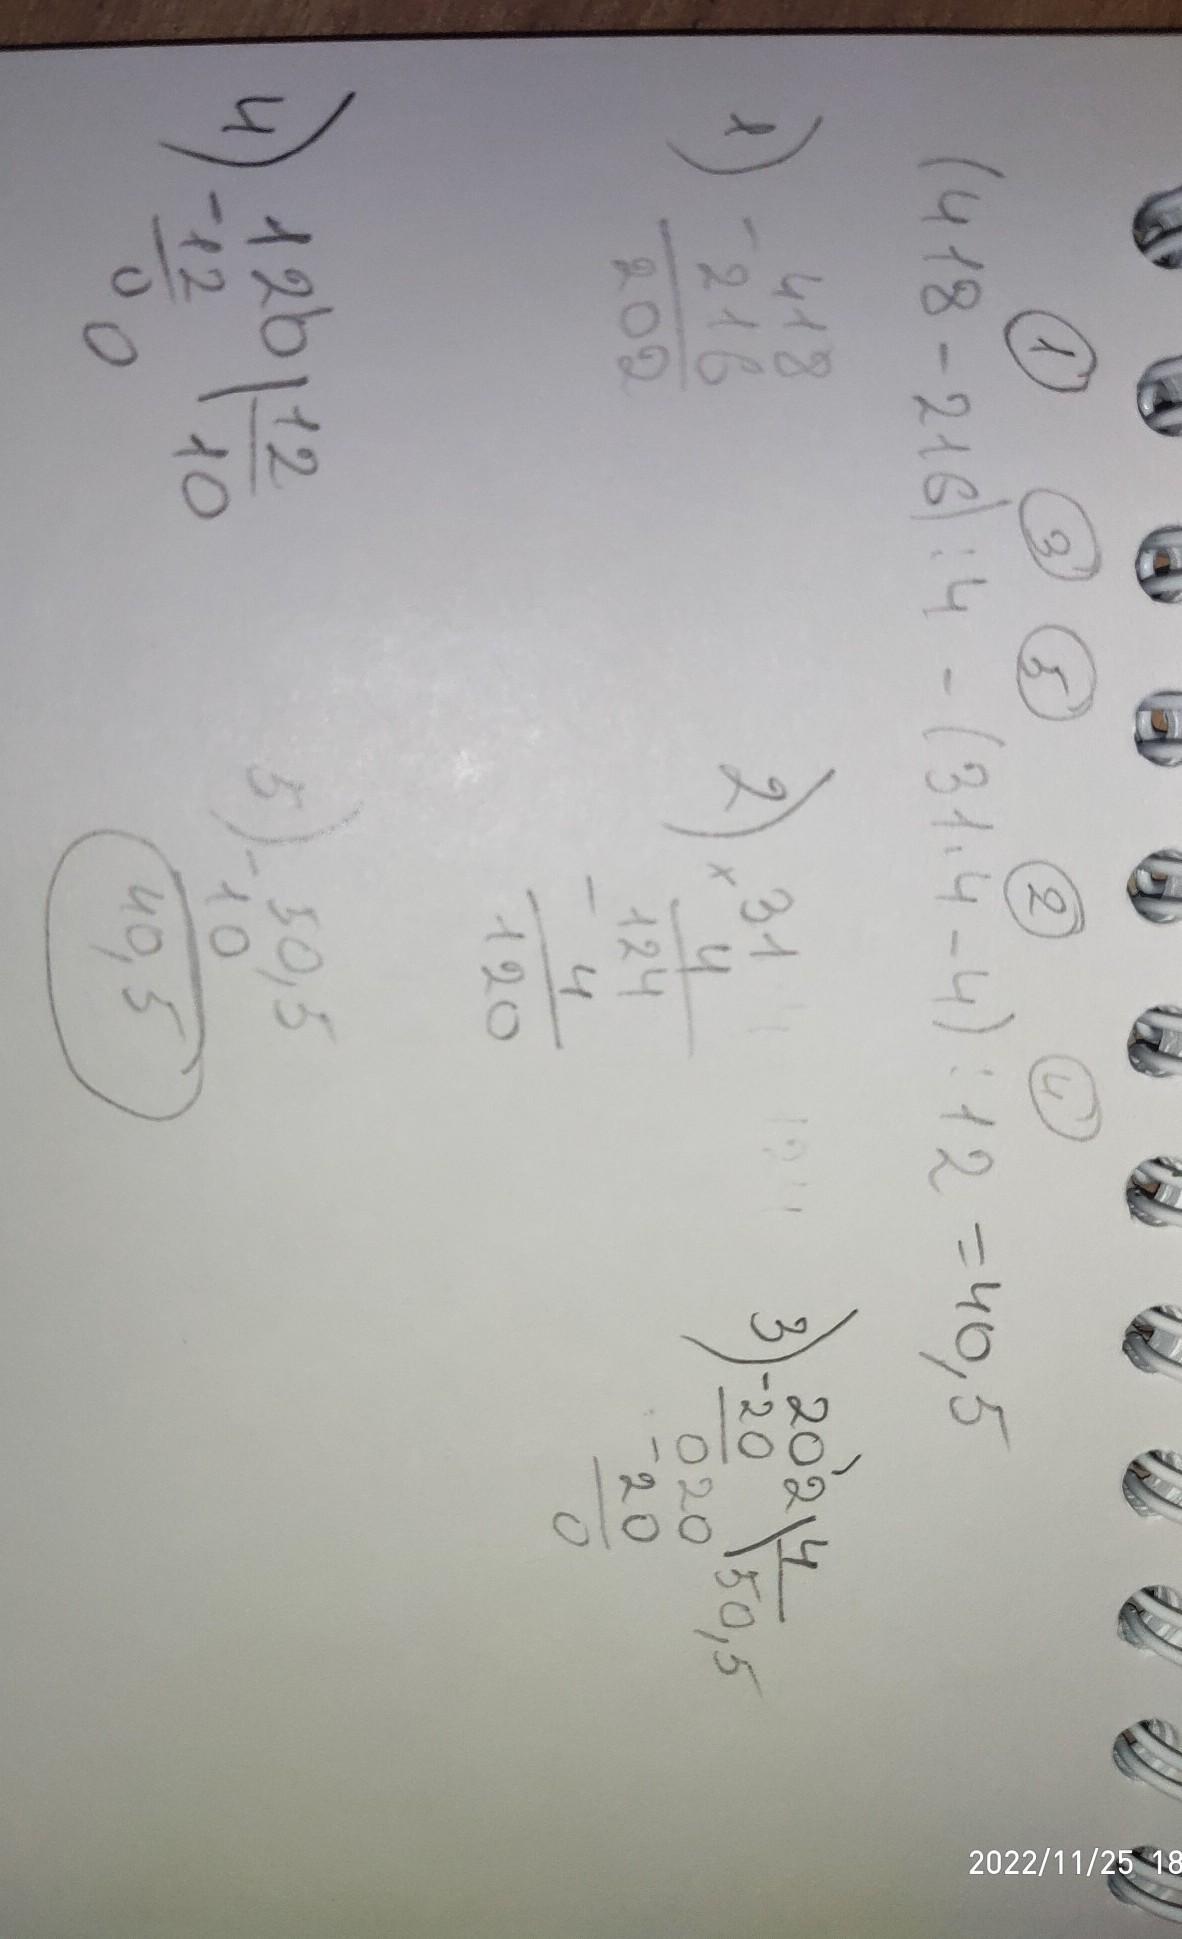 ① ③ ⑤ ② ④
(418-216):4-(31·4-4):12=40,5
1) -418
216
202
2) ×31
4
124
- 4
120
3) 202 | 4
-20 50,5
020
-20
0
4) 120 | 12
-12 10
0
0
5) -50,5
10
40,5
2022/11/25 18